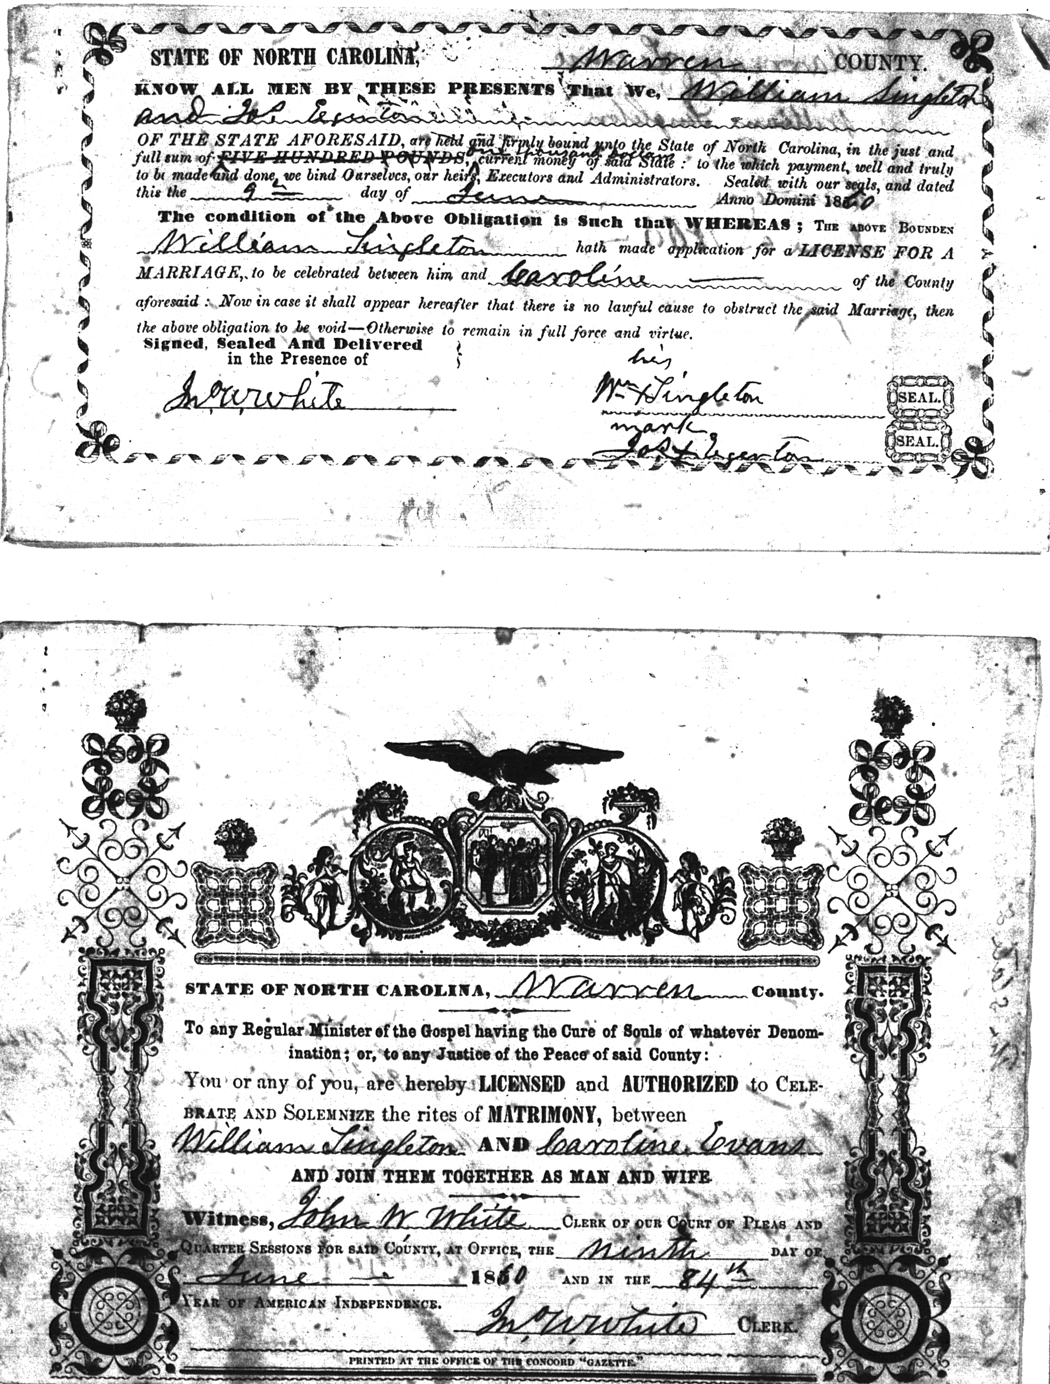 STATE OF NORTH CAROLINA, Warren COUNTY.
KNOW ALL MEN BY THESE PRESENTS That We, William Singleton
and Jos Egerton
OF THE STATE AFORESAID, are held and firmly bound unto the State of North Carolina, in the just and
one thousand
full sum of FIVE HUNDRED POUNDS, current money of said State: to the which payment, well and truly
to be made and done, we bind Ourselves, our heirs, Executors and Administrators. Sealed with our seals, and dated
this the 9th day of June Anno Domini 1860
The condition of the Above Obligation is Such that WHEREAS; THE ABOVE BOUNDEN
William Singleton hath made application for a LICENSE FOR A
MARRIAGE, to be celebrated between him and Caroline of the County
aforesaid: Now in case it shall appear hereafter that there is no lawful cause to obstruct the said Marriage, then
the above obligation to be void—Otherwise to remain in full force and virtue.
Signed, Sealed And Delivered
in the Presence of
his
Jno W. White Wm X Singleton SEAL.
mark
Jos Egerton SEAL.
STATE OF NORTH CAROLINA, Warren County.
To any Regular Minister of the Gospel having the Cure of Souls of whatever Denom-
ination; or, to any Justice of the Peace of said County:
You or any of you, are hereby LICENSED and AUTHORIZED to CELE-
BRATE AND SOLEMNIZE the rites of MATRIMONY, between
William Singleton AND Caroline Evans
AND JOIN THEM TOGETHER AS MAN AND WIFE
Witness, John W White CLERK OF OUR COURT OF PLEAS AND
QUARTER SESSIONS FOR SAID COUNTY, AT OFFICE, THE ninth DAY OF
June 1860 AND IN THE 84th
YEAR OF AMERICAN INDEPENDENCE.
Jno W. White CLERK.
PRINTED AT THE OFFICE OF THE CONCORD "GAZETTE."